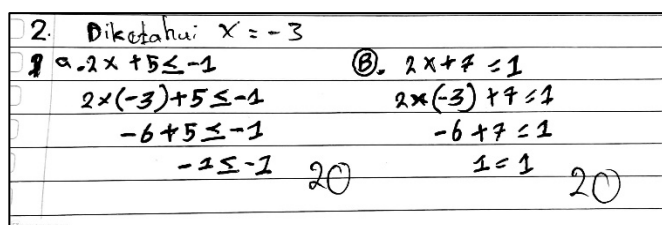 2. Diketahui x = -3
a. 2x + 5 ≤ -1
2x(-3) + 5 ≤ -1
-6 + 5 ≤ -1
-1 ≤ -1
20
B. 2x + 7 ≤ 1
2x(-3) + 7 ≤ 1
-6 + 7 ≤ 1
1 ≤ 1
20